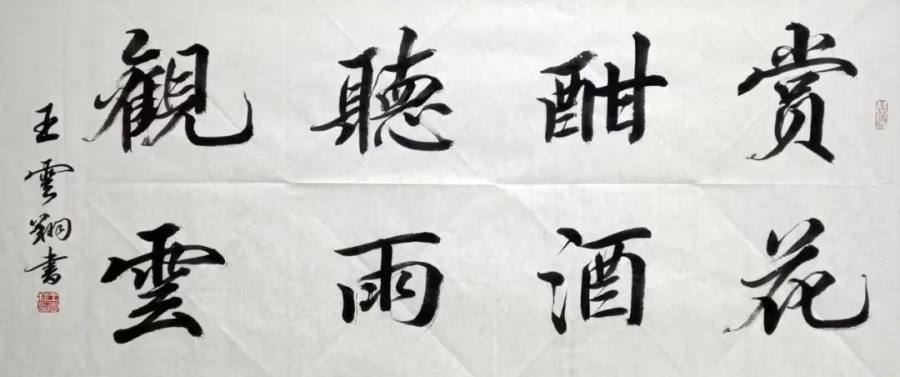 赏花
酣酒
聽雨
觀雲
王雲翔書